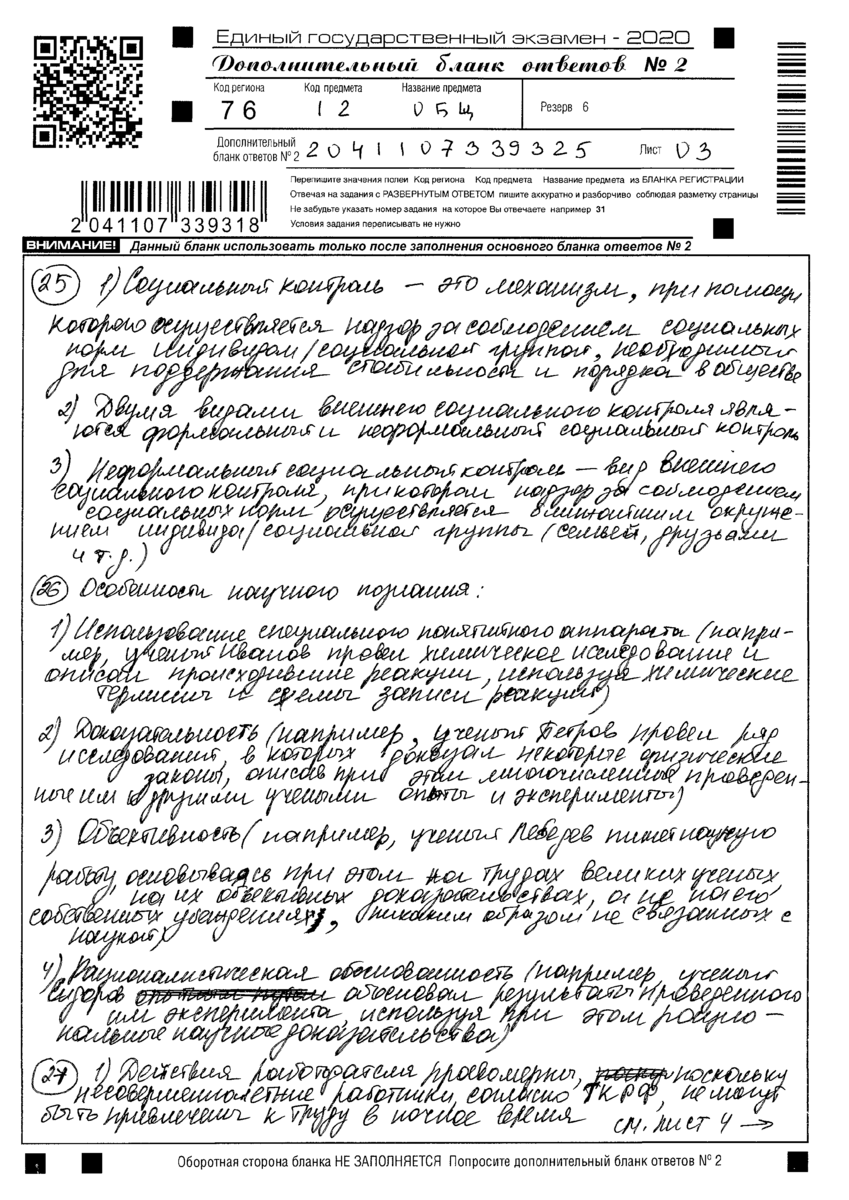 Единый государственный экзамен - 2020
Дополнительный бланк ответов № 2
Код региона Код предмета Название предмета
76 12 ОБЩ Резерв 6
Дополнительный бланк ответов № 2 2041107339325 Лист 03
Перепишите значения полей Код региона Код предмета Название предмета из БЛАНКА РЕГИСТРАЦИИ
Отвечая на задания с РАЗВЕРНУТЫМ ОТВЕТОМ пишите аккуратно и разборчиво соблюдая разметку страницы
Не забудьте указать номер задания на которое Вы отвечаете например 31
Условия задания переписывать не нужно
2 041107 339318
ВНИМАНИЕ! Данный бланк использовать только после заполнения основного бланка ответов № 2
25 1) Социальный контроль – это механизм, при помощи
которого осуществляется надзор за соблюдением социальных
норм индивидом/социальной группой, необходимый
для поддержания стабильности и порядка в обществе
2) Двумя видами внешнего социального контроля явля-
ются формальный и неформальный социальный контроль
3) Неформальный социальный контроль – вид внешнего
социального контроля, при котором надзор за соблюдением
социальных норм осуществляется ближайшим окруже-
нием индивида/социальной группы (семьей, друзьями
и т.д.)
26 Особенности научного познания:
1) Использование специального понятийного аппарата (напри-
мер, ученый Иванов провел химическое исследование и
описал происходившие реакции, используя химические
термины и схемы записи реакций)
2) Доказательность (например, ученый Петров провел ряд
исследований, в которых доказал некоторые физические
законы, описав при этом многочисленные проведен-
ные им и другими учеными опыты и эксперименты)
3) Объективность (например, ученый Лебедев пишет научную
работу, основываясь при этом на трудах великих ученых
на их объективных доказательствах, а не на его
собственных убеждениях, никаким образом не связанных с
наукой)
4) Рационалистическая обоснованность (например, ученый
Сидоров обосновал результаты проведенного
им эксперимента, используя при этом рацио-
нальные научные доказательства)
27 1) Действия работодателя правомерны, поскольку
несовершеннолетние работники, согласно ТК РФ, не могут
быть привлечены к труду в ночное время см. лист 4 →
Оборотная сторона бланка НЕ ЗАПОЛНЯЕТСЯ Попросите дополнительный бланк ответов № 2